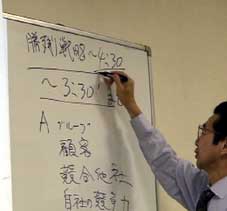 勝残戦略～4:30
～3:30
A グループ
顧客
競合他社
自社の競争力